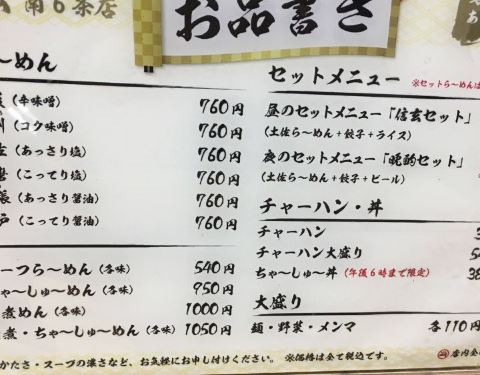 南6条店
お品書き
～めん
(辛味噌) 760円
(コク味噌) 760円
(あっさり塩) 760円
(こってり塩) 760円
(あっさり醤油) 760円
(こってり醤油) 760円
ーつら～めん (各味) 540円
ゃ～しゅ～めん (各味) 950円
煮めん (各味) 1000円
煮・ちゃ～しゅ～めん (各味) 1050円
セットメニュー ※セットら～めんは
昼のセットメニュー「信玄セット」
(土佐ら～めん+餃子+ライス)
夜のセットメニュー「晩酌セット」
(土佐ら～めん+餃子+ビール)
チャーハン・丼
チャーハン
チャーハン大盛り
ちゃ～しゅ丼 (午後6時まで限定) 38
大盛り
麺・野菜・メンマ 各110円
かたさ・スープの濃さなど、お気軽にお申し付けください。 ※価格は全て税込です。
店内全